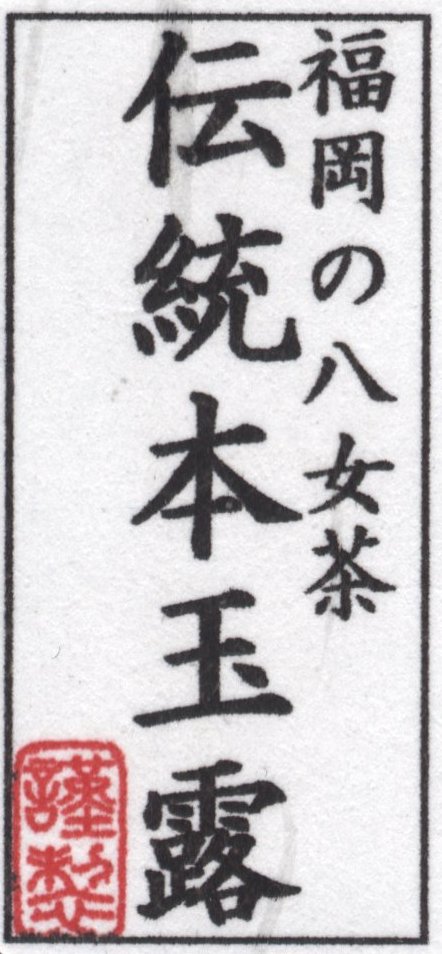 福岡の八女茶
伝統本玉露
謹製